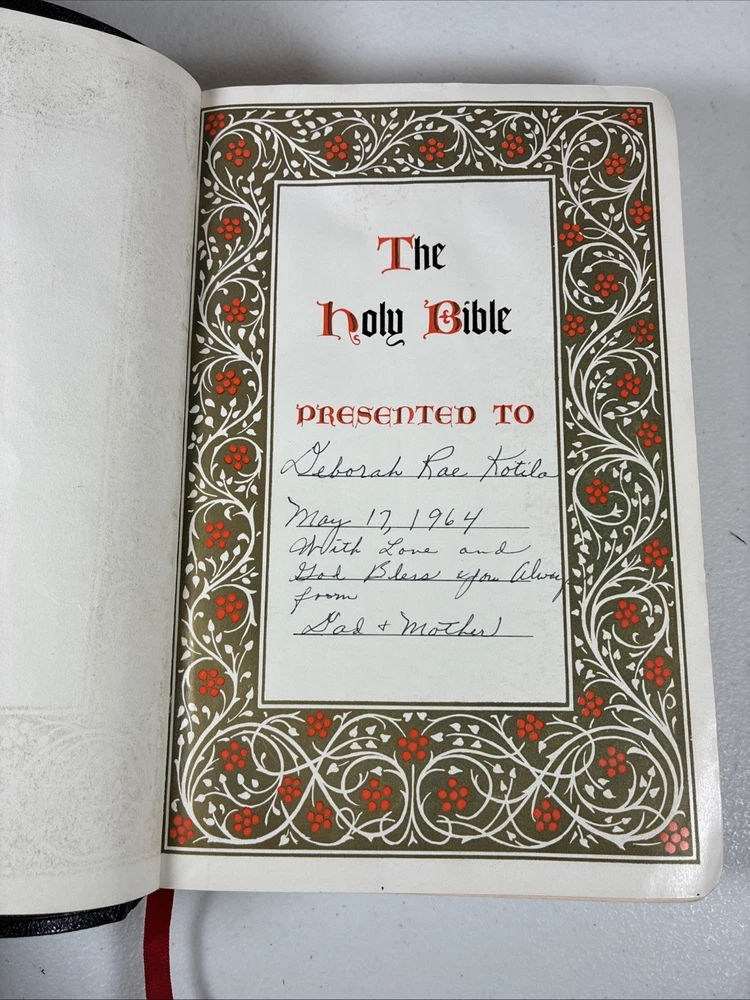 The
Holy Bible
PRESENTED TO
Deborah Rae Kotila
May 17, 1964
With Love and
God Bless you Always
from
Dad + Mother